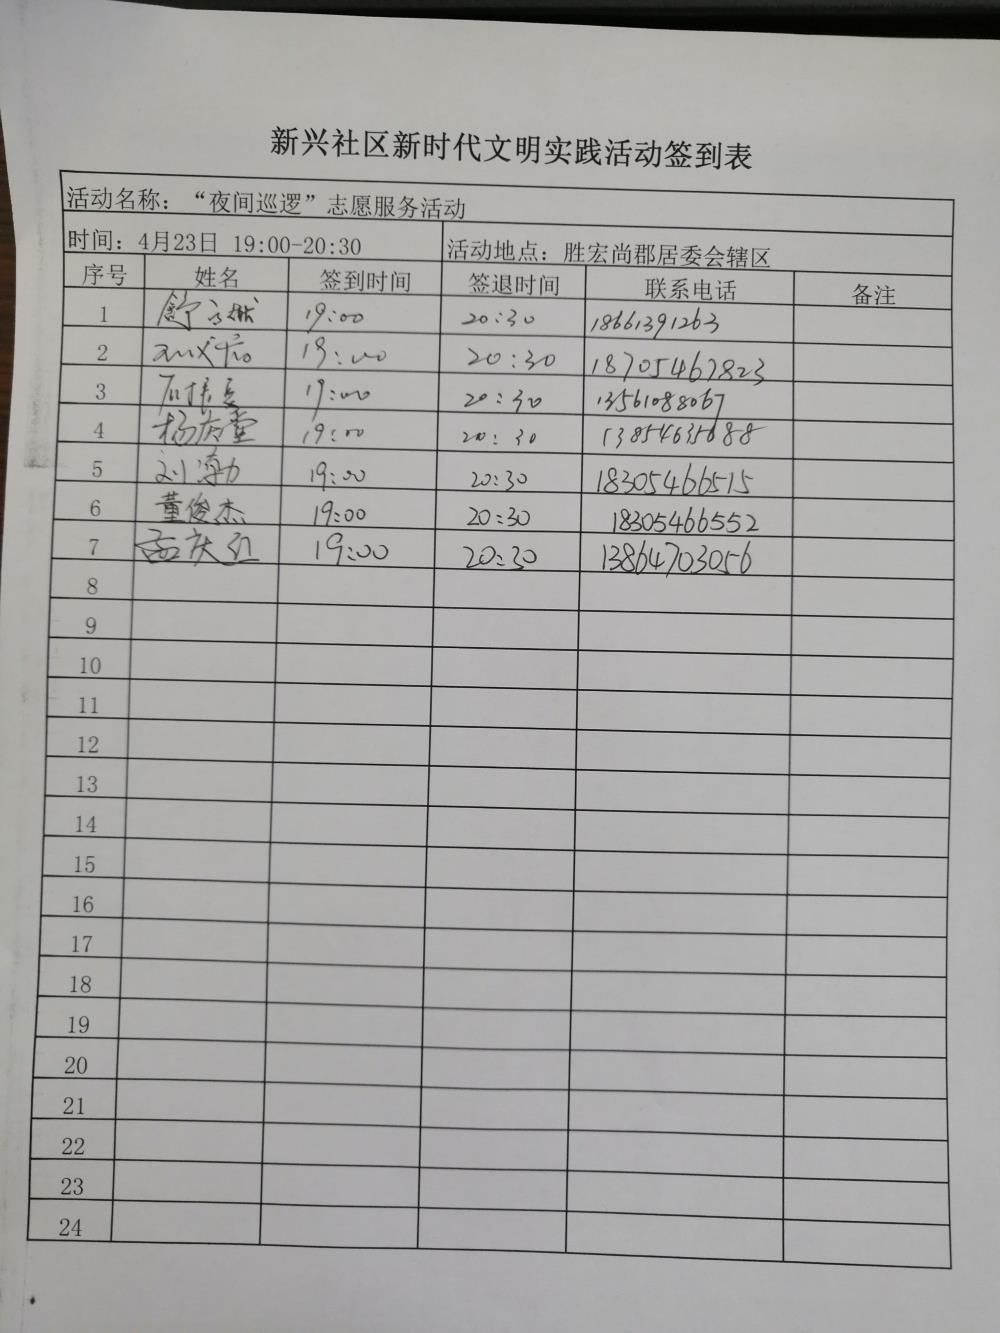 新兴社区新时代文明实践活动签到表
活动名称：“夜间巡逻”志愿服务活动
时间：4月23日 19:00-20:30 活动地点：胜宏尚郡居委会辖区
序号 姓名 签到时间 签退时间 联系电话 备注
1 舒 19:00 20:30 18661391263
2 19:00 20:30 18705467823
3 19:00 20:30 13561088067
4 杨庆堂 19:00 20:30
5 刘渤 19:00 20:30 18305466515
6 董俊杰 19:00 20:30 18305466552
7 孟庆红 19:00 20:30 13864703056
8
9
10
11
12
13
14
15
16
17
18
19
20
21
22
23
24